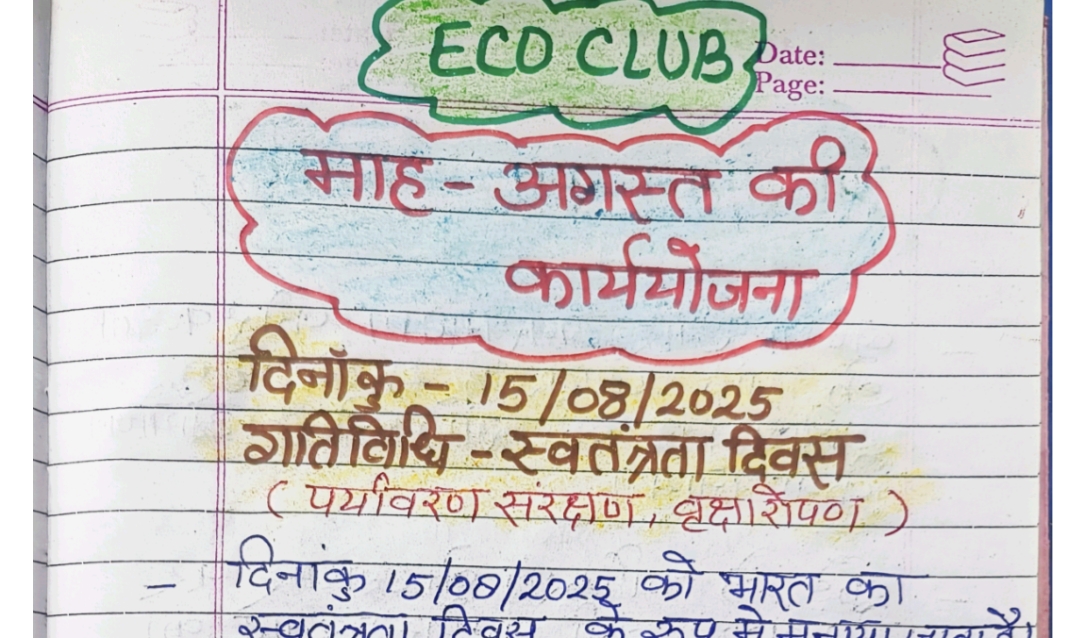 ECO CLUB
Date:
Page:
माह - अगस्त की
कार्ययोजना
दिनाँक - 15/08/2025
गतिविधि - स्वतंत्रता दिवस
( पर्यावरण संरक्षण, वृक्षारोपण )
- दिनांक 15/08/2025 को भारत का
स्वतंत्रता दिवस के रूप में मनाया